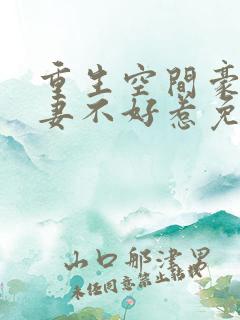 重生空間豪
妻不好惹免
山口那津男
未经同意禁止转载